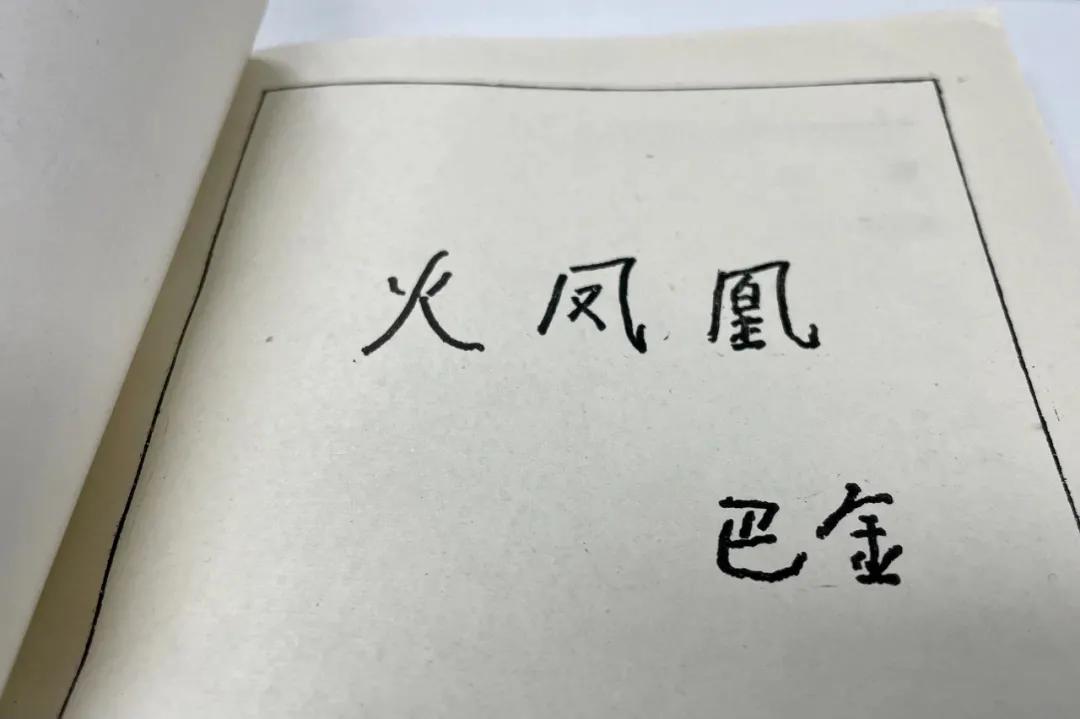 火凤凰
巴金